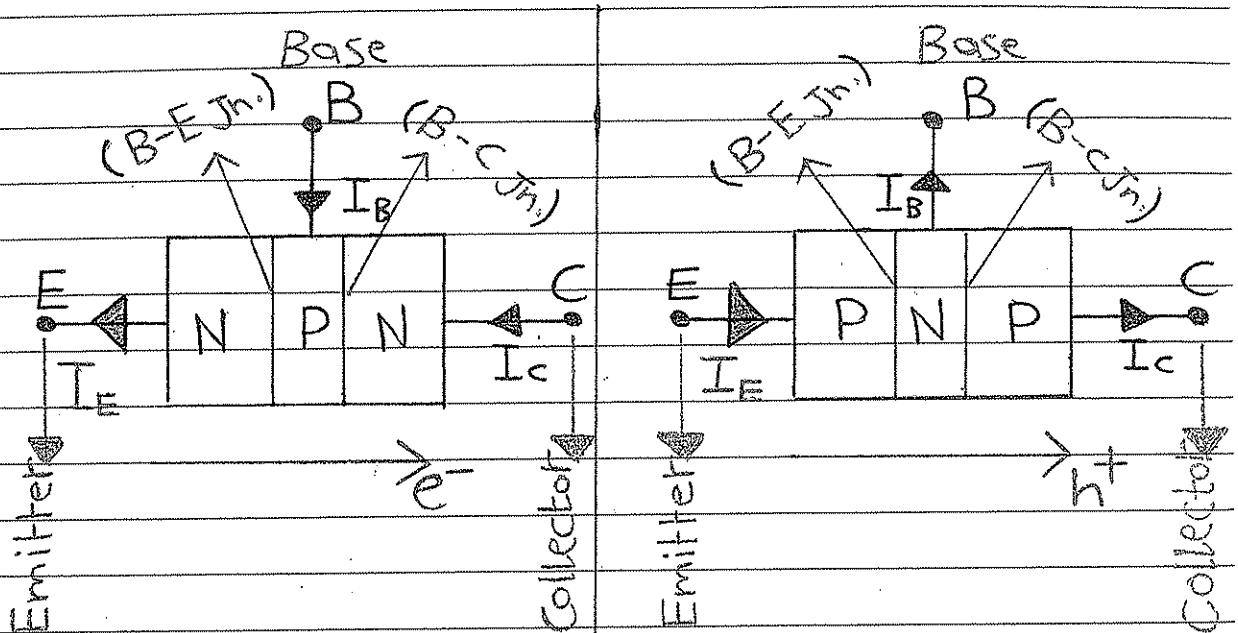 Base
B
(B-E Jn.)
(B-C Jn.)
I_B
E
N P N
C
I_E
I_C
e⁻
Emitter
Collector
Base
B
(B-E Jn.)
(B-C Jn.)
I_B
E
P N P
C
I_E
I_C
h⁺
Emitter
Collector